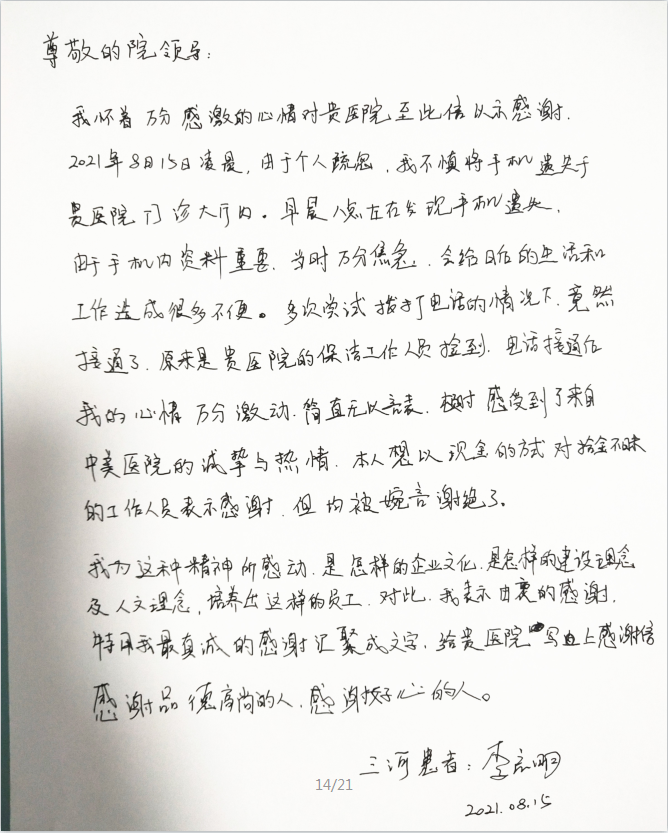 尊敬的院领导：
我怀着万分感激的心情对贵医院至此信以示感谢.
2021年8月15日凌晨,由于个人疏忽,我不慎将手机遗失于
贵医院门诊大厅内。早晨八点左右发现手机遗失,
由于手机内资料重要.当时万分焦急.会给日后的生活和
工作造成很多不便。多次尝试拨打电话的情况下.竟然
接通了.原来是贵医院的保洁工作人员捡到.电话接通后
我的心情万分激动.简直无以言表.顿时感受到了来自
中美医院的诚挚与热情.本人想以现金的方式对拾金不昧
的工作人员表示感谢.但均被婉言谢绝了。
我为这种精神所感动.是怎样的企业文化.是怎样的建设理念
及人文理念,培养出这样的员工.对此.我表示由衷的感谢.
特用我最真诚的感谢汇聚成文字,给贵医院写上感谢信
感谢品德高尚的人.感谢好心的人。
三河患者：李
14/21
2021.08.15